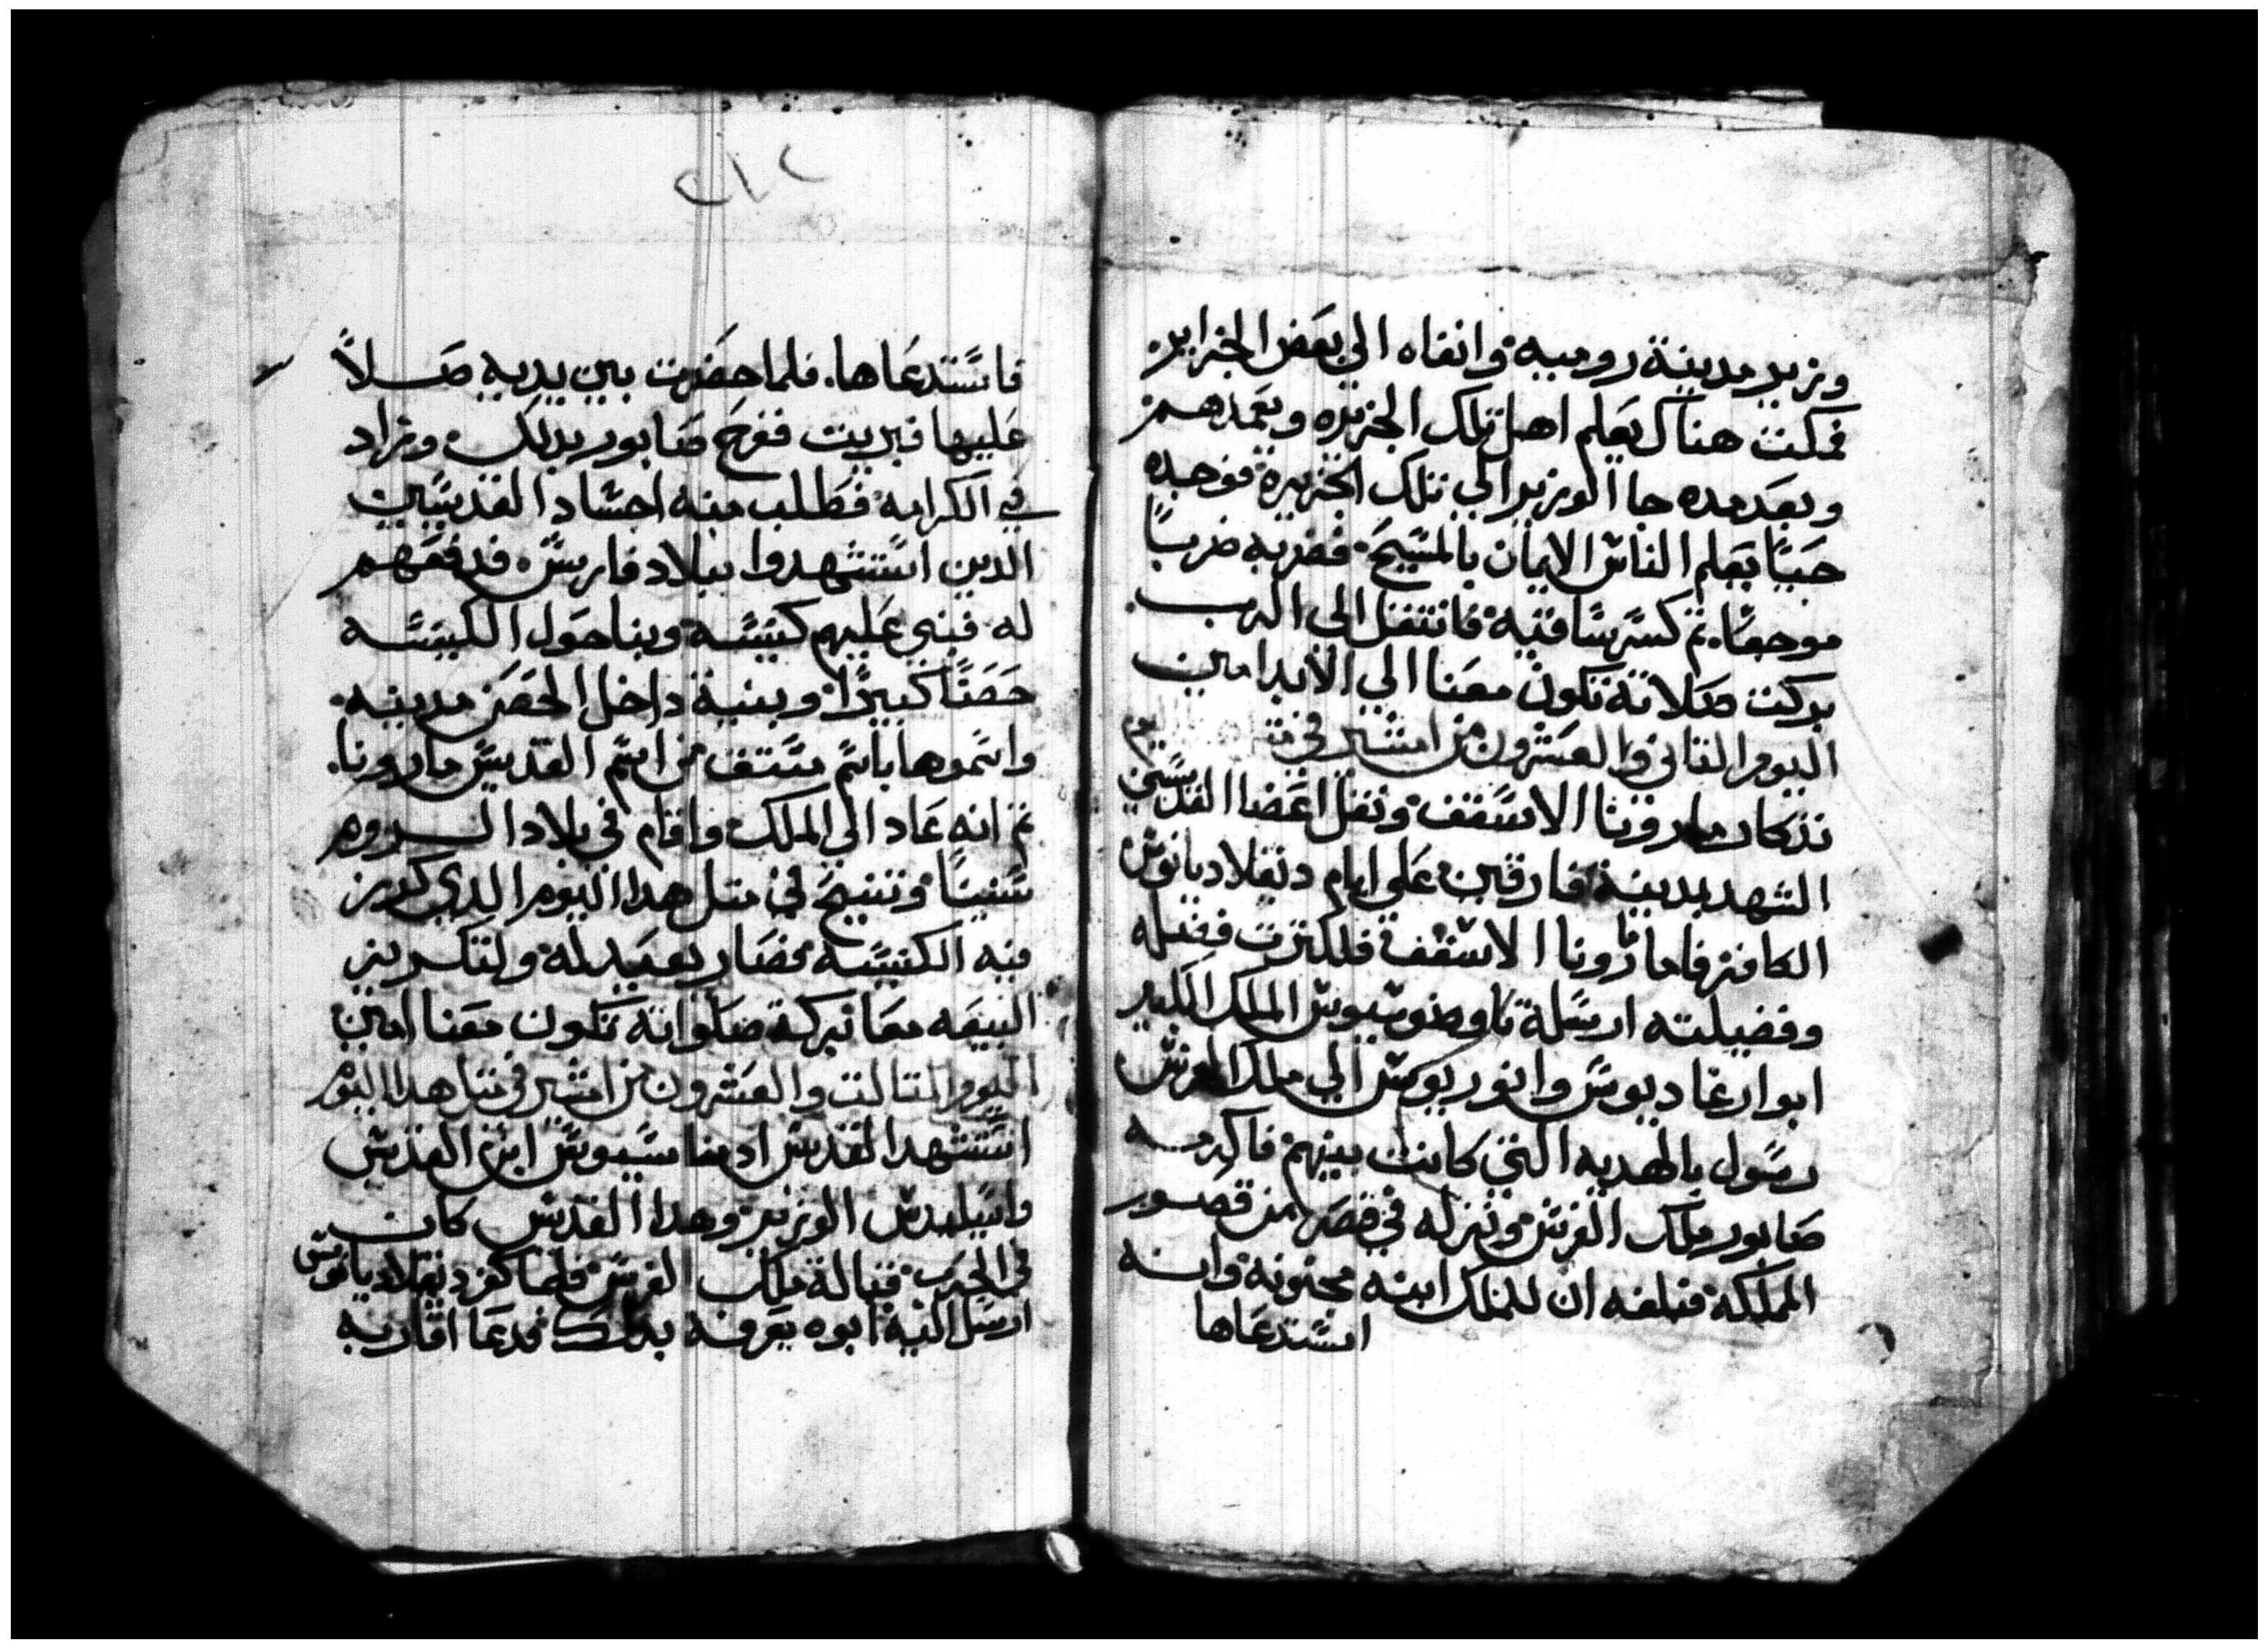 وزير مدينة روميه وانفاه الي بعض الجزاير
فمكت هناك يعلم اهل تلك الجزيره ويعمدهم
وبعد مده جا الوزير الي تلك الجزيرة فوجده
حيًا يعلم الناس الايمان بالمسيح فضربه ضربًا
موجعًا. تم كسر ساقيه فانتقل الي الرب
بركت صلاته تكون معنا الي الابد امين
اليوم التاني والعشرون من امشير في
تذكار ماروتا الاسقف ونقل اعضا القديسين
الشهد بمدينة فارقين علي ايام دقلاديانوس
الكافر فاما ماروتا الاسقف فلكترت فضله
وفضيلته ارسلة تاوضوسيوس الملك الكبير
ابوا ارغاديوس وانوريوس الي ملك الفرس
رسول بالهديه التي كانت بينهم فاكرمه
صابور ملك الفرس ونزله في قصر من قصور
المملكة فبلغه ان للملك ابنه مجنونه وانه
استدعاها
٢١٢
فاستدعاها. فلما حضرت بين يديه صلاً
عليها فبريت ففرح صابور بدلك وزاد
في الكرامه فطلب منه اجساد القديسين
الدين استشهدوا ببلاد فارس فدفعهم
له فبني عليهم كنيسه وبنا حول الكنيسه
حصنًا كبيرًا وبنية داخل الحصن مدينه
واسموها باسم مشتق من اسم القديس ماروتا.
تم انه عاد الي الملك واقام في بلاد الروم
سنينًا وتنيح في متل هدا اليوم الدي كرز
فيه الكنيسه فصار يعيد له ولتكريز
البيعه معا بركة صلواته تكون معنا امين
اليوم التالت والعشرون من امشير في متل هدا اليوم
استشهد القديس اوسابيوس ابن القديس
واسيليدس الوزير وهدا القديس كان
في الحرب قبالة ملك الفرس فلما كفر دقلاديانوس
ارسل اليه ابوه يعرفه بدلك فدعا اقاربه